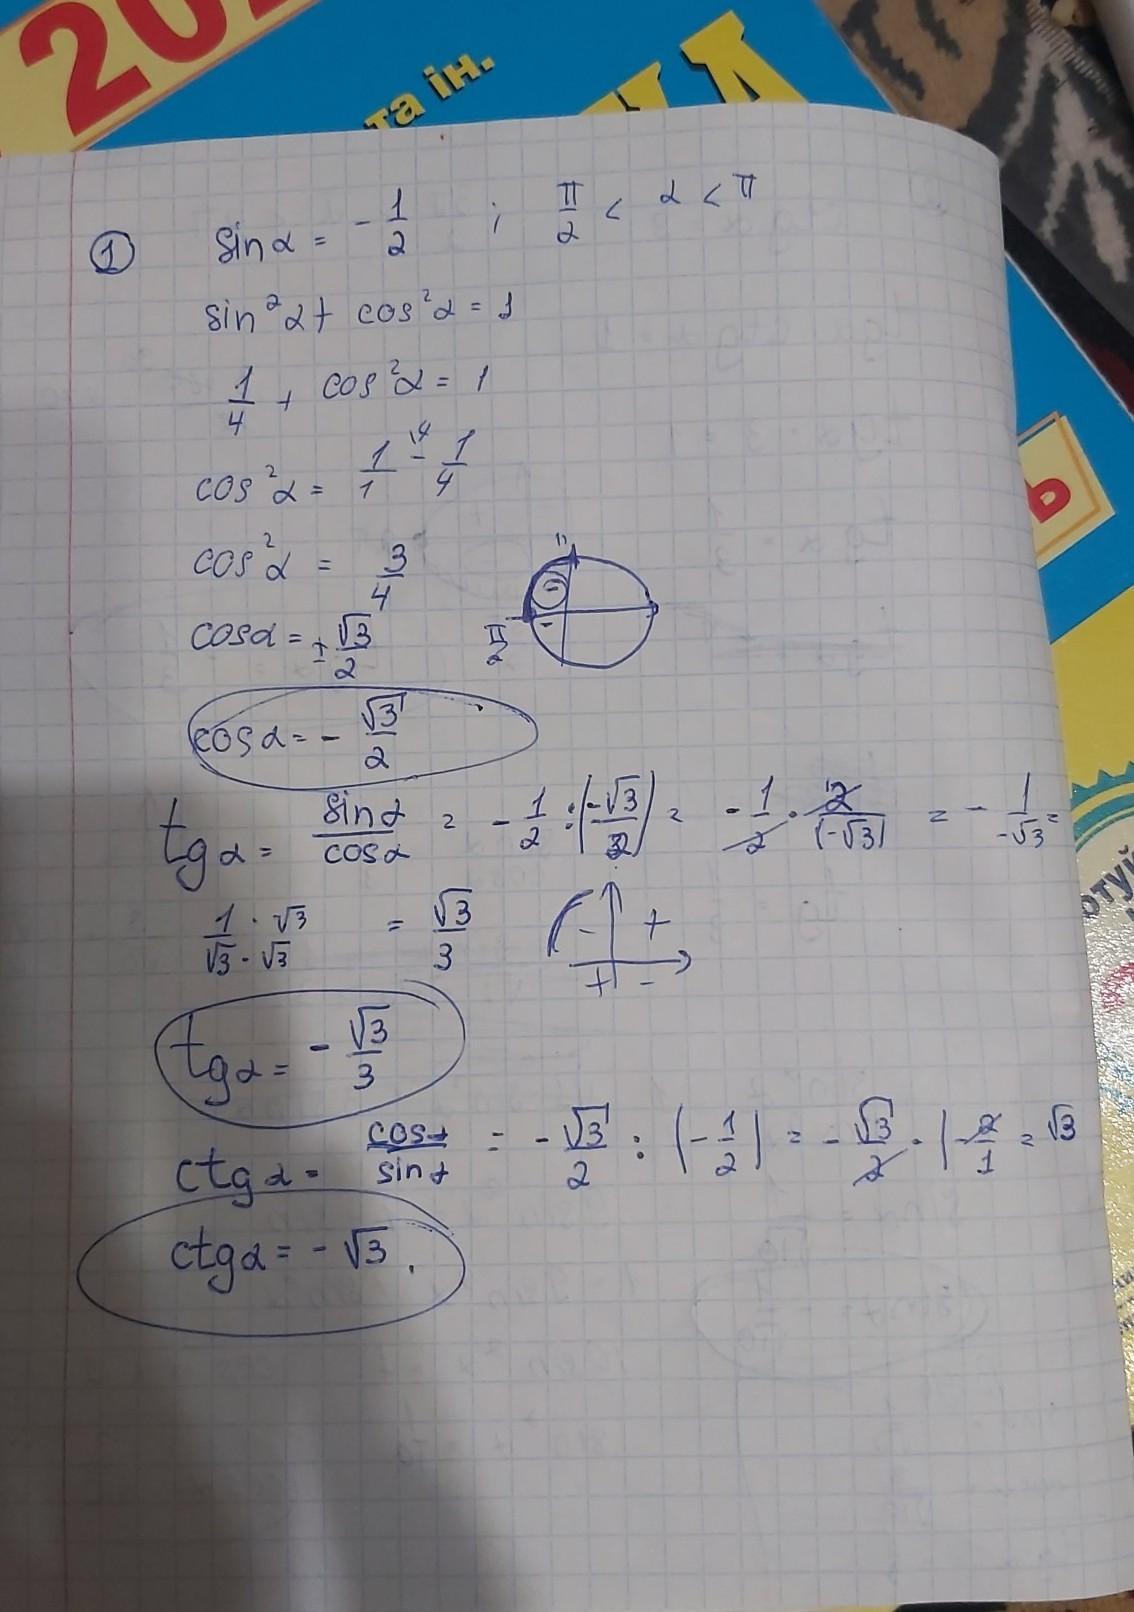 202
та ін.
ь
отуй
① sinα = -1/2 ; π/2 < α < π
sin²α + cos²α = 1
1/4 + cos²α = 1
cos²α = 1/1 - 1/4
cos²α = 3/4
cosα = ±√3/2
π
-
-
π/2
cosα = -√3/2
tgα = sinα/cosα = -1/2 : (-√3/2) = -1/2 · 2/(-√3) = -1/-√3 =
1·√3/√3·√3 = √3/3
- +
+ -
tgα = -√3/3
ctgα = cosα/sinα = -√3/2 : (-1/2) = -√3/2 · (-2/1 = √3
ctgα = -√3.